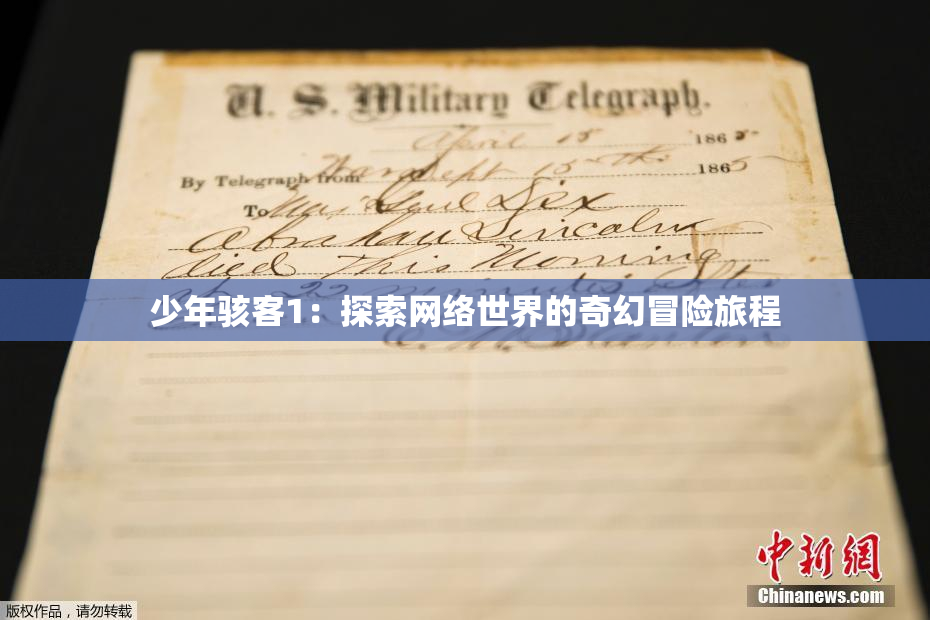 U. S. Military Telegraph.
April 15 1865
By Telegraph from War Dept 15th 1865
To Maj Genl Dix
Abraham Lincoln
died This Morning
at 22 minutes after
少年骇客1：探索网络世界的奇幻冒险旅程
E. M. Stanton
中新網
Chinanews.com
版权作品，请勿转载